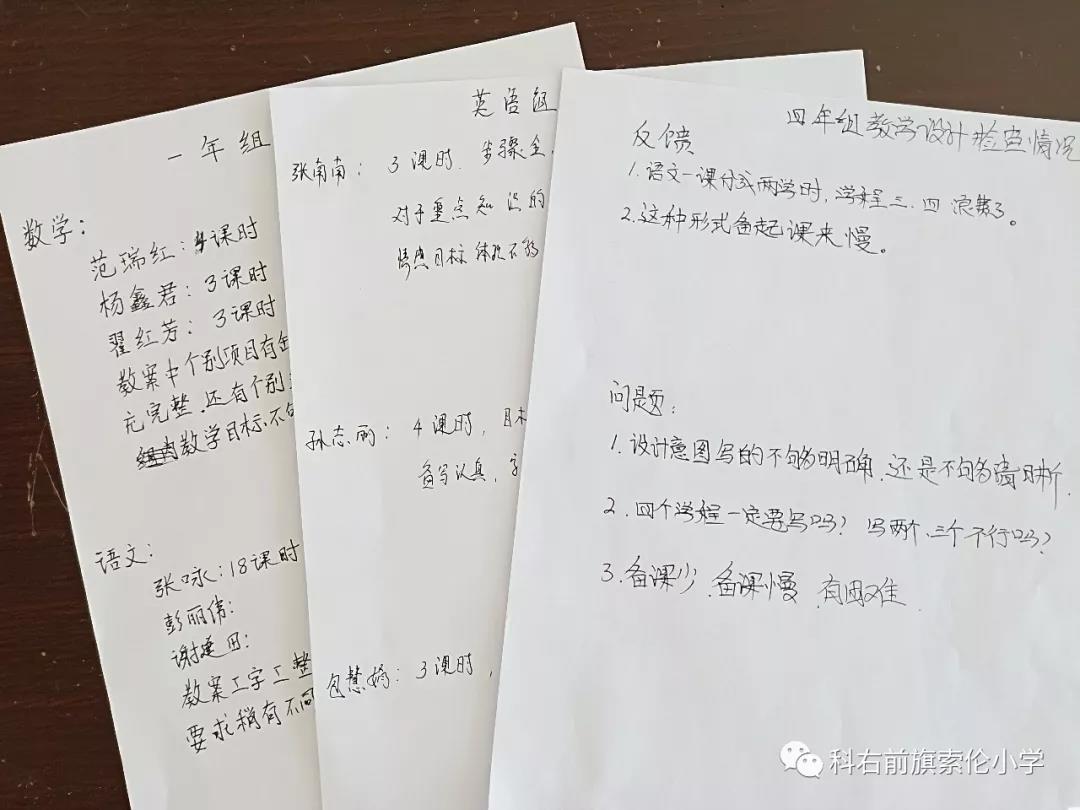 一年组
数学：
范瑞红：4课时
杨鑫君：3课时
翟红芳：3课时
教案中个别项目有
充完整.还有个别
教学目标.不
语文：
张咏：18课时
彭丽伟：
谢
教案工字工整
要求稍有不同
英语组
张南南：3课时.步骤全.
对于重点知识的
情感目标体现不够
孙志丽：4课时，目标
备写认真，字
包慧娟：3课时，
四年组教学设计检查情况
反馈
1.语文一课分成两学时，学程三.四浪费了。
2.这种形式备起课来慢。
问题：
1.设计意图写的不够明确.还是不够清晰.
2.四个学程一定要写吗？写两个、三个不行吗？
3.备课少.备课慢.有困难.
科右前旗索伦小学